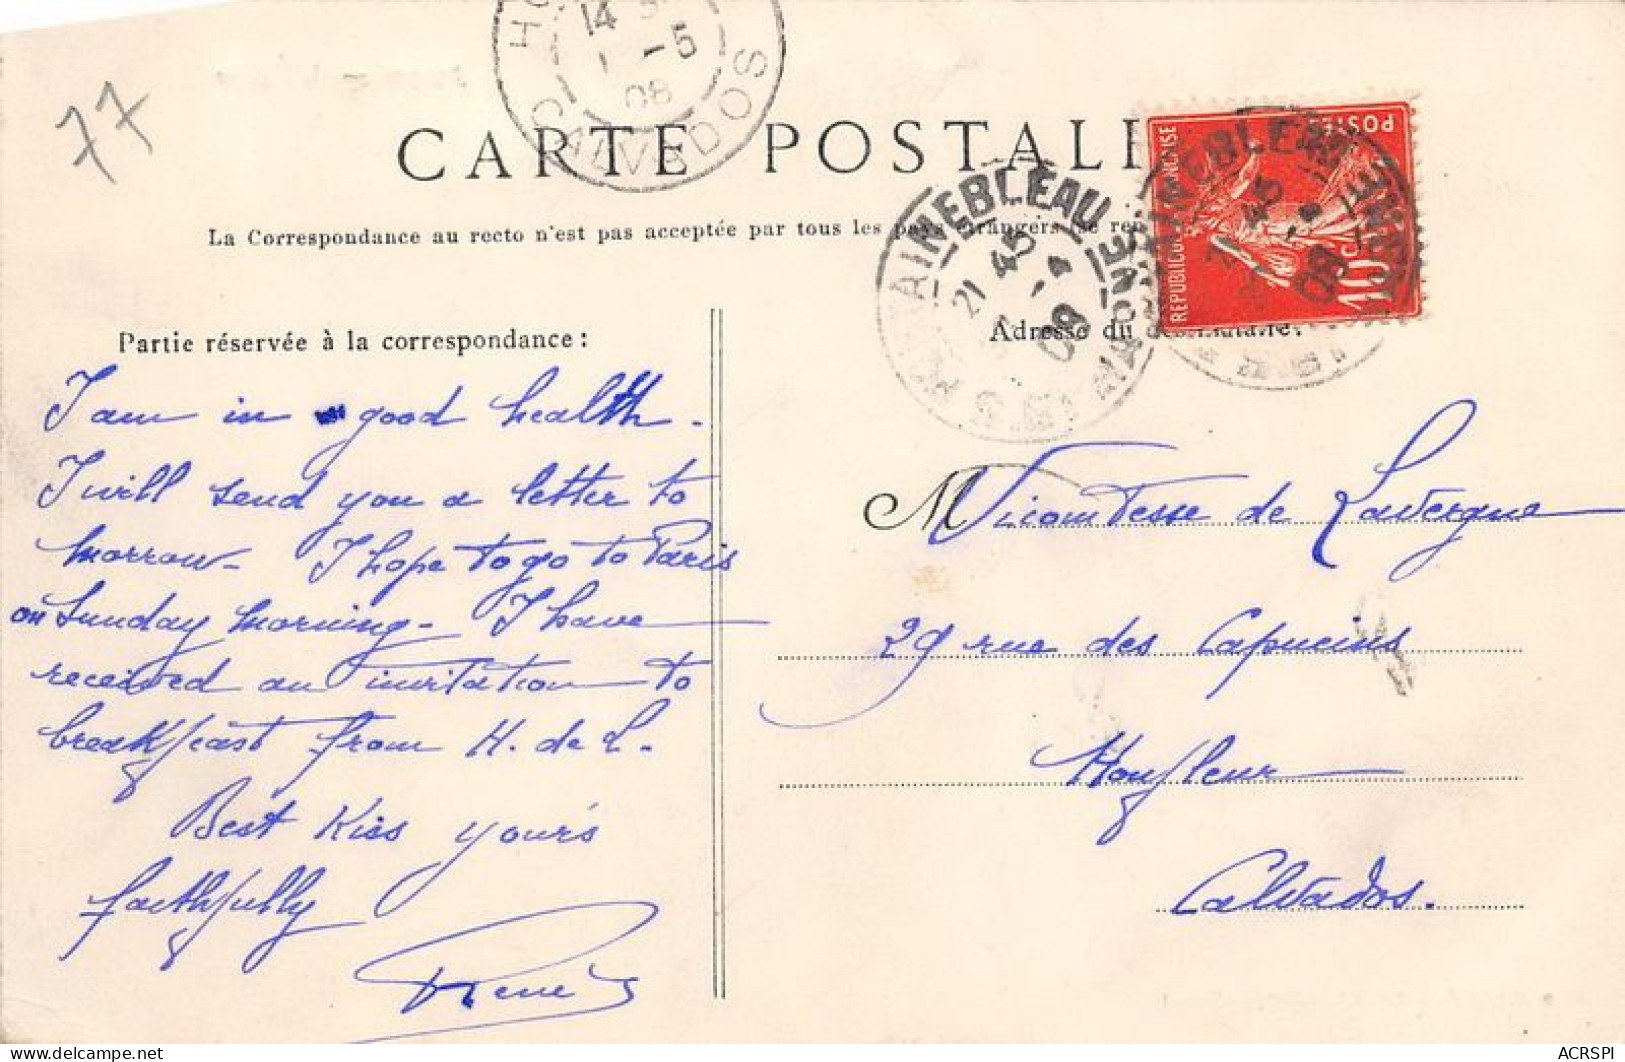 77
HO
14
1 -5
08
CALVADOS
CARTE POSTALE
La Correspondance au recto n'est pas acceptée par tous les pays étrangers (se ren
FONTAINEBLEAU
21 45
-4
08
Partie réservée à la correspondance :
Adresse du destinataire:
REPUBLIQUE FRANÇAISE
POSTES
10c
I am in good health.
I will send you a letter to
morrow- I hope to go to Paris
on Sunday morning- I have
received an invitation to
breakfeast from H. de L.
Best Kiss your's
faithfully
René
M Vicomtesse de Lavergne
29 rue des Capucins
Honfleur
Calvados.
delcampe.net
ACRSPI